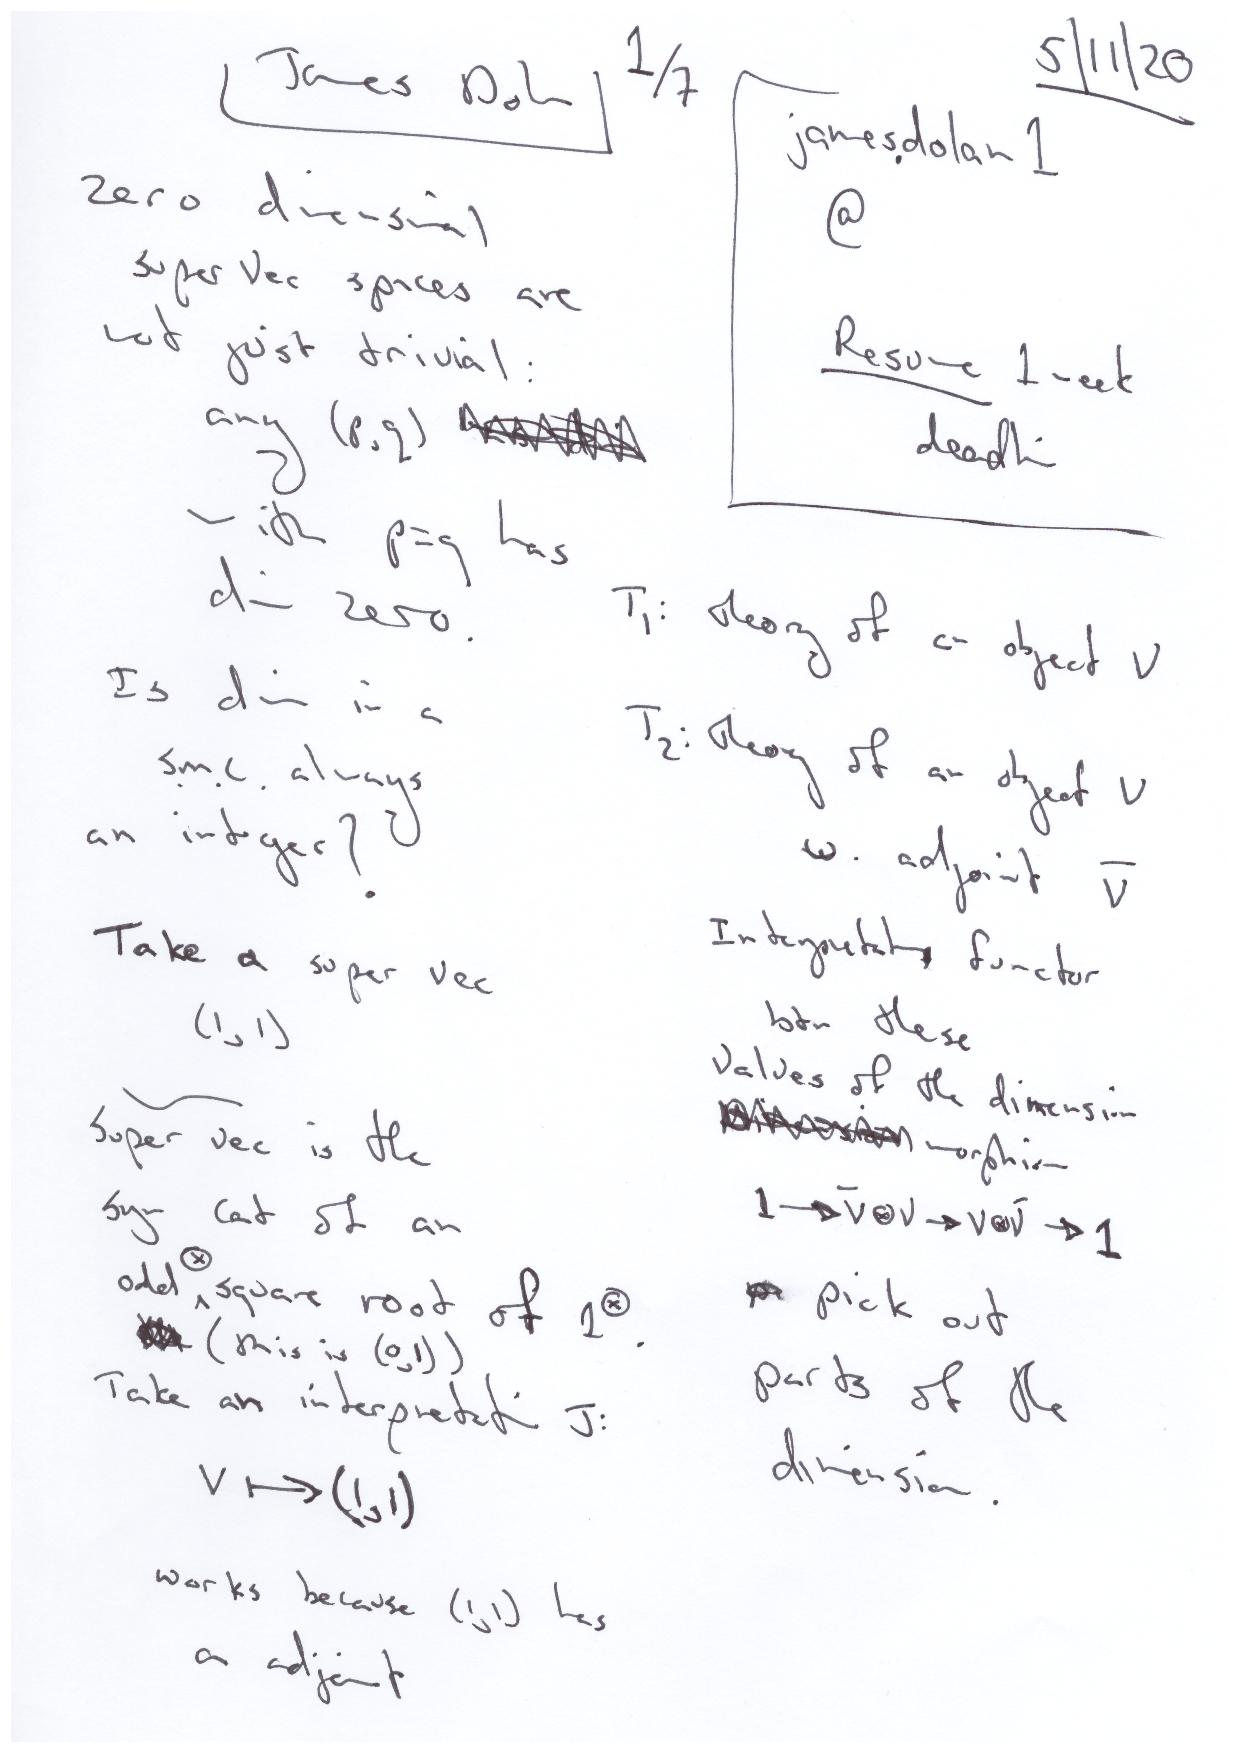 James Dolan
1/7
5/11/20
james.dolan1
@
Resume 1 week
deadline
zero dimensional
super Vec spaces are
not just trivial:
any (p,q)
with p=q has
dim zero.
Is dim in a
s.m.c. always
an integer?
Take a super vec
(1,1)
Super vec is the
sym cat of an
odd ⊗ square root of 1⊗.
(this is (0,1))
Take an interpretation J:
V ↦ (1,1)
works because (1,1) has
an adjoint
T₁: theory of an object V
T₂: theory of an object V
w. adjoint V̄
Interpretation functor
btn these
Values of the dimension
morphism
1 → V̄⊗V → V⊗V̄ → 1
pick out
parts of the
dimension.